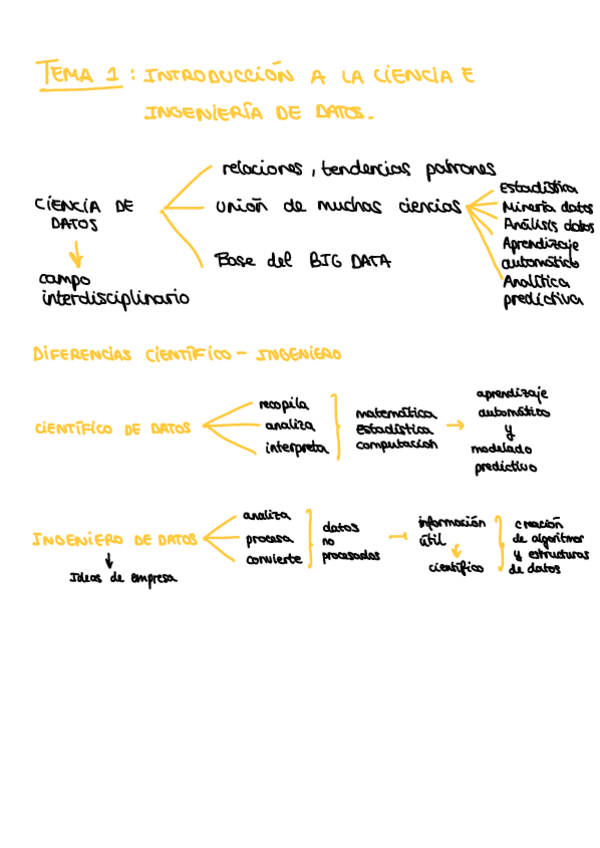 TEMA 1 : INTRODUCCIÓN A LA CIENCIA E
INGENIERÍA DE DATOS.
CIENCIA DE
DATOS
campo
interdisciplinario
relaciones, tendencias patrones
unión de muchas ciencias
Base del BIG DATA
Estadística
Minería datos
Análisis datos
Aprendizaje
automático
Analítica
predictiva
DIFERENCIAS CIENTÍFICO - INGENIERO
CIENTÍFICO DE DATOS
recopila
analiza
interpreta
matemática
estadística
computación
aprendizaje
automático
y
modelado
predictivo
INGENIERO DE DATOS
Ideas de empresa
analiza
procesa
convierte
datos
no
procesados
información
útil
científico
creación
de algoritmos
y estructuras
de datos